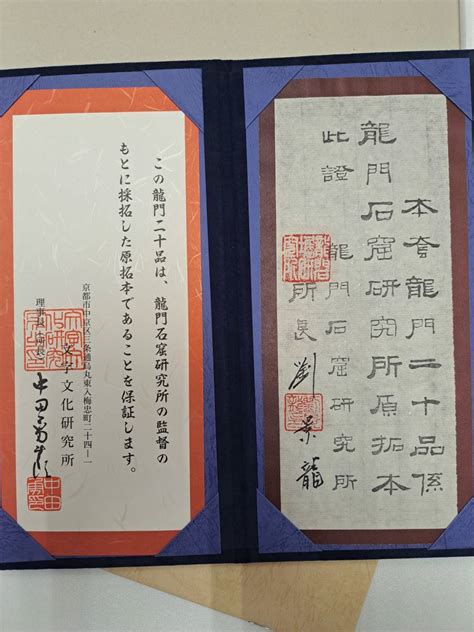 本套龍門二十品係
龍門石窟研究所原拓本
此證
龍門石窟研究所
所長 劉景龍
この龍門二十品は、龍門石窟研究所の監督の
もとに採拓した原拓本であることを保証します。
京都市中京区三条通烏丸東入梅忠町二十四―一
文字文化研究所
理事長(所長)